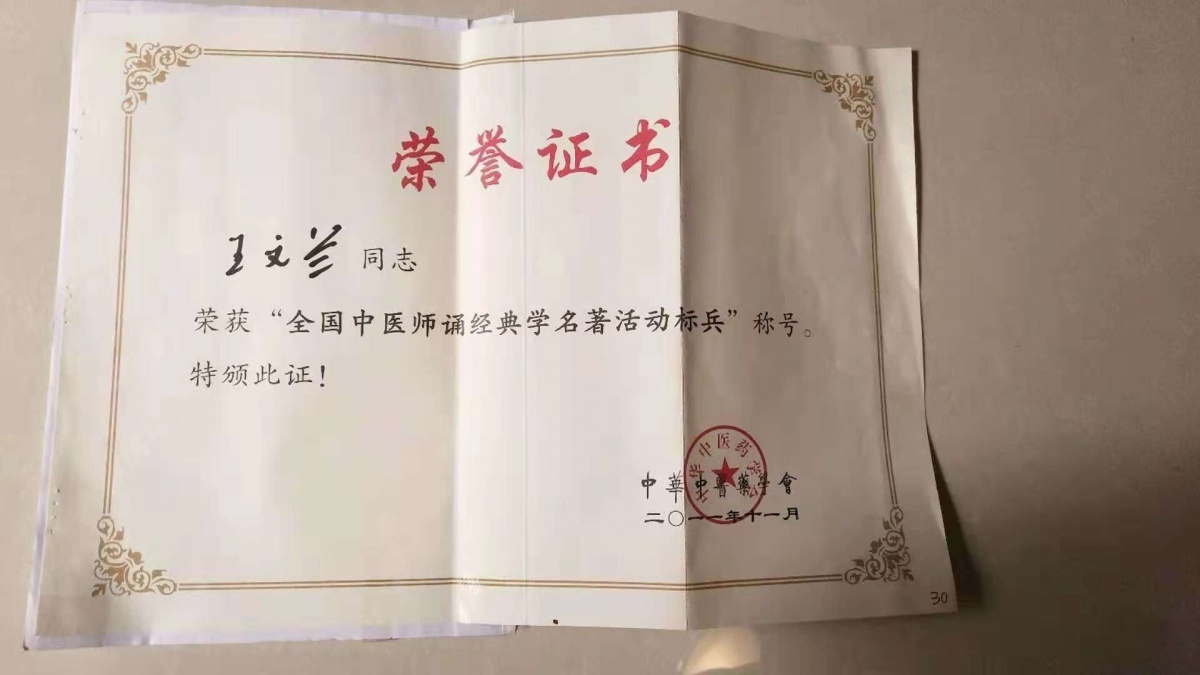 荣誉证书
王文兰 同志
荣获“全国中医师诵经典学名著活动标兵”称号。
特颁此证!
中华中医药学会
中華中醫藥學會
二〇一一年十一月
30